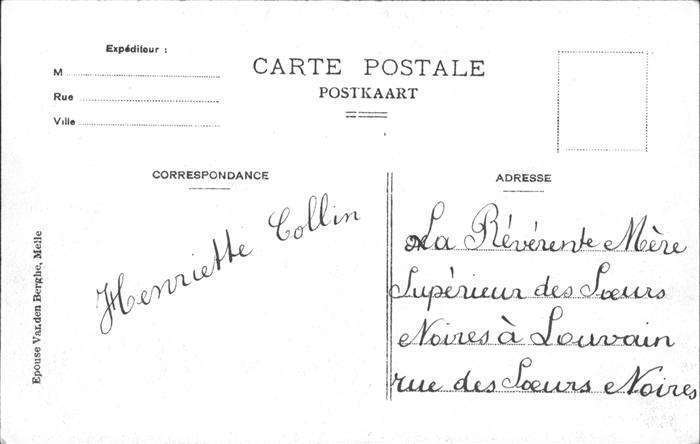 Expéditeur :
M
Rue
Ville
CARTE POSTALE
POSTKAART
CORRESPONDANCE
Henriette Collin
ADRESSE
La Révérente Mère
Supérieur des Sœurs
Noires à Louvain
rue des Sœurs Noires
Epouse Van den Berghe, Melle